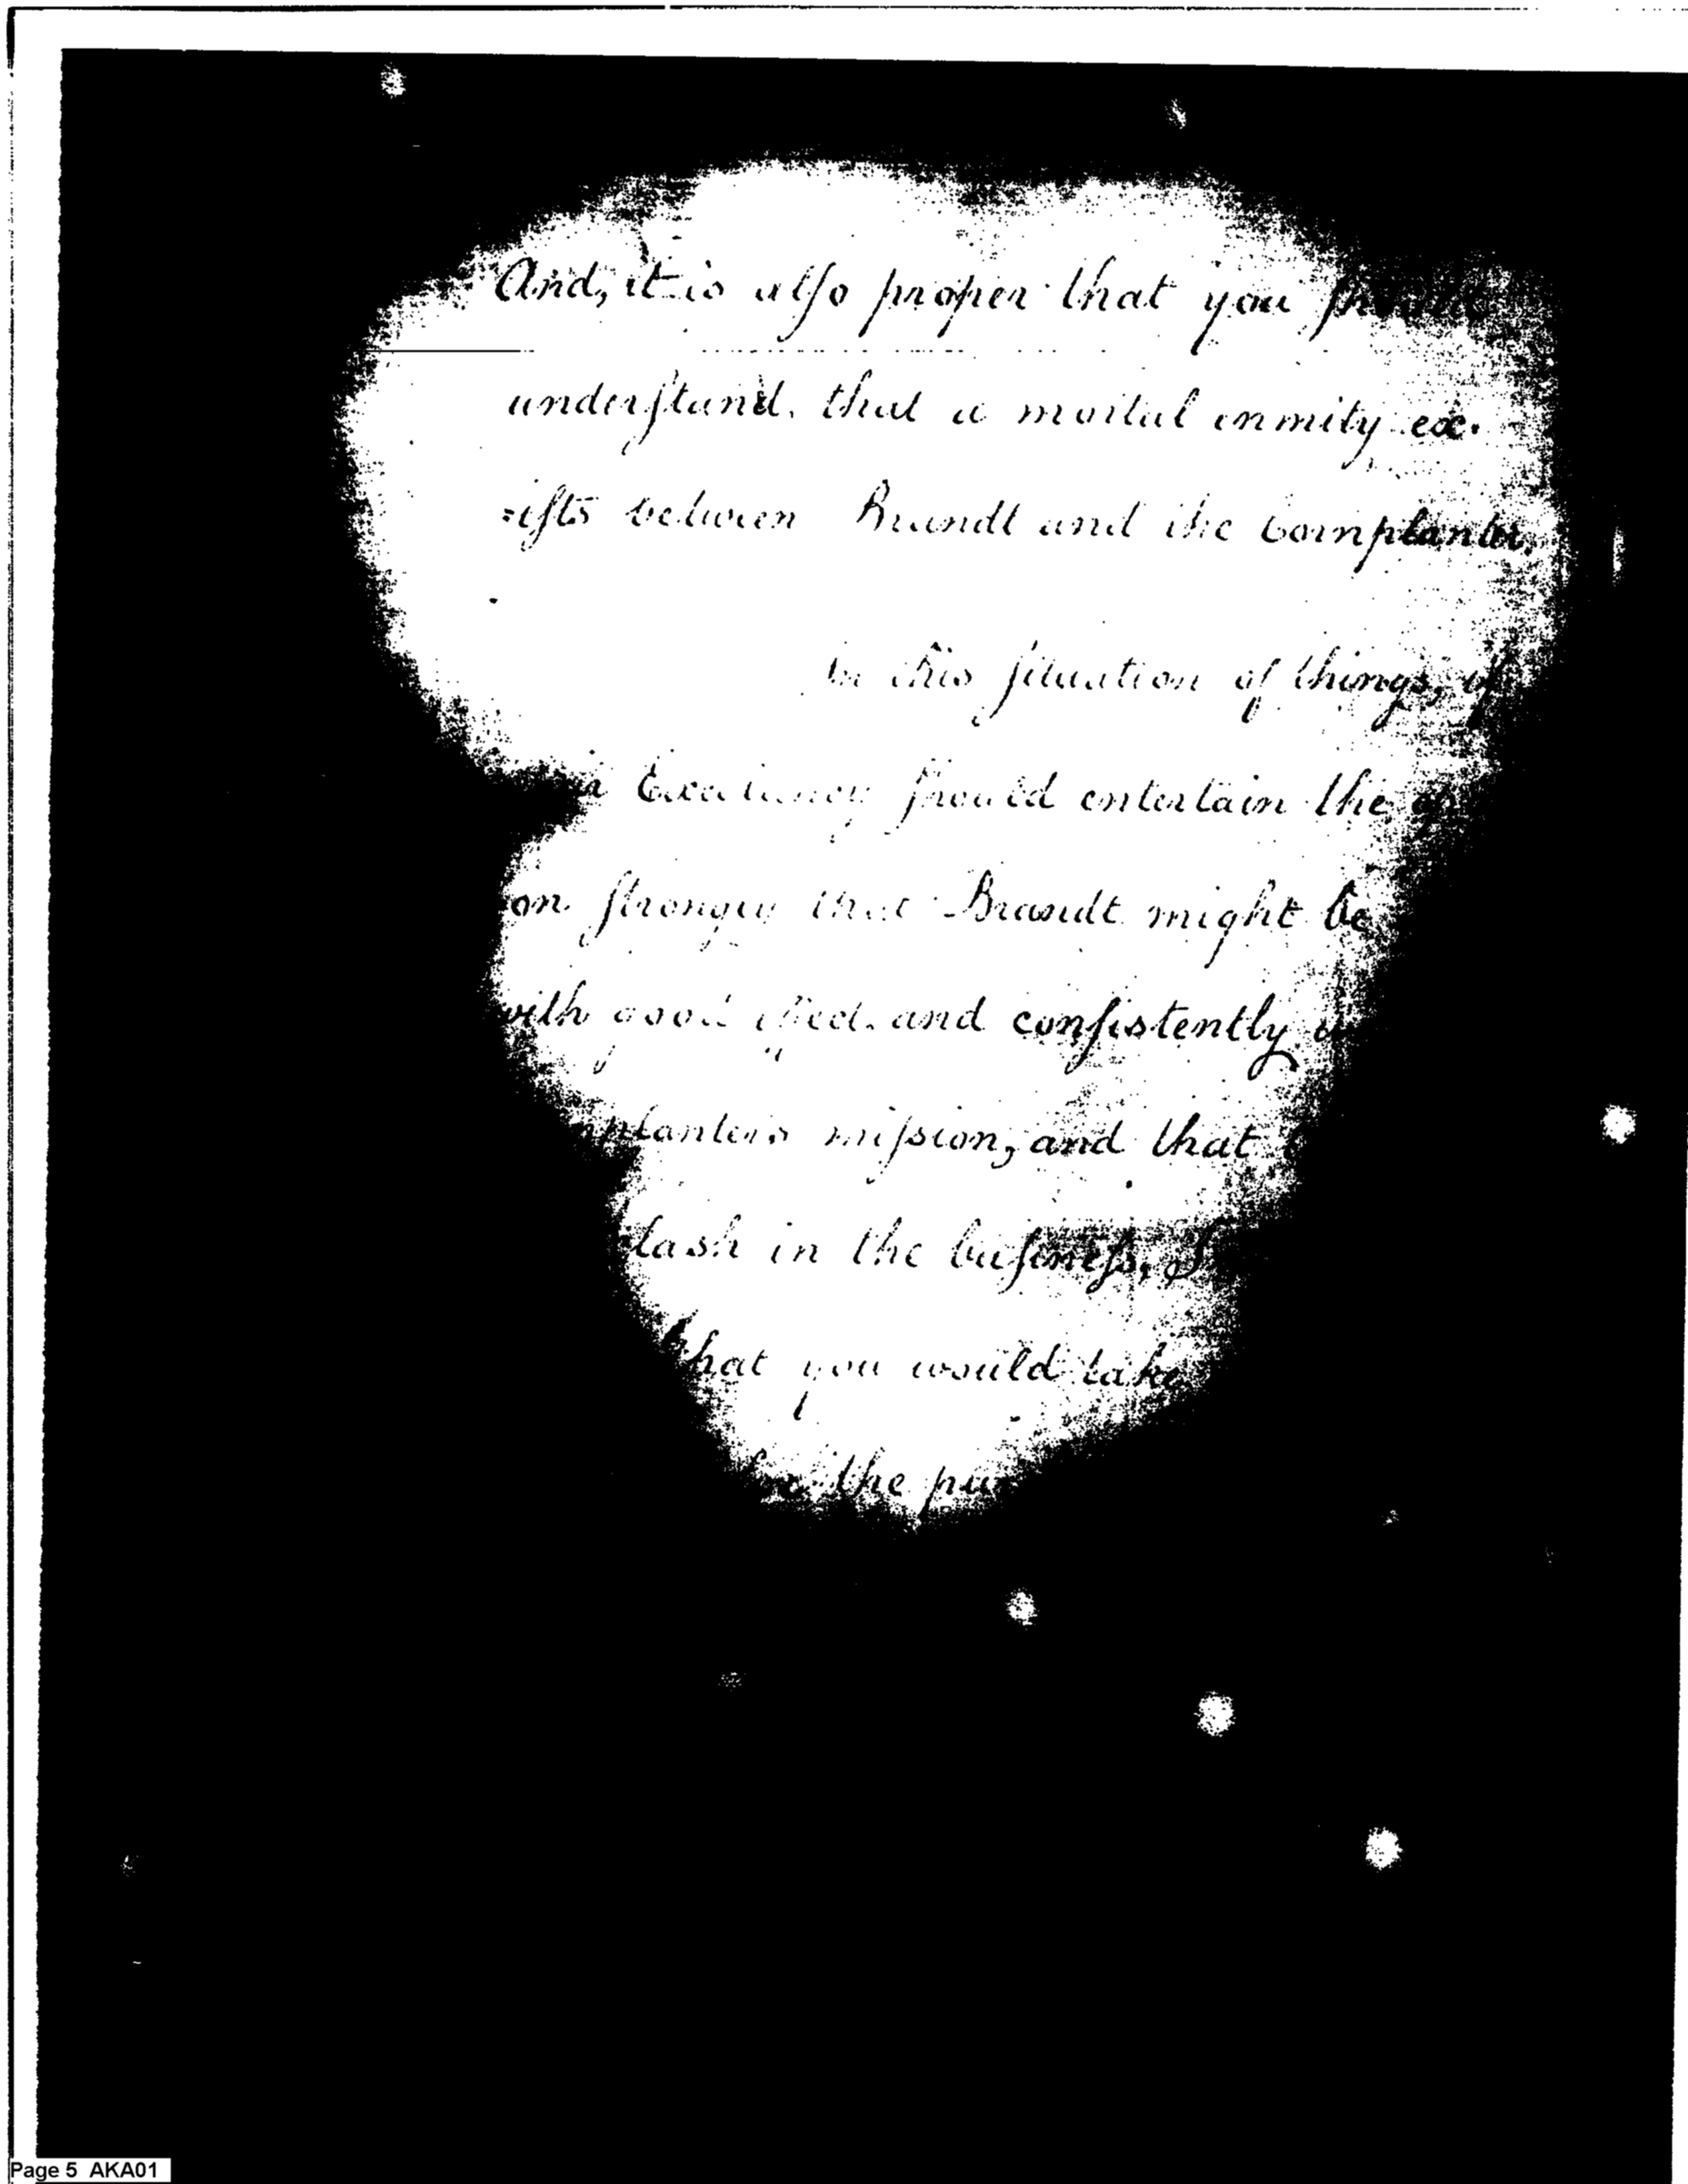 And, it is also proper that you should
understand, that a mortal enmity ex-
=ists between Brandt and the Cornplanter.
In this situation of things, if
Excellency should entertain the
on strongly that Brandt might be
with good effect, and consistently
planters mission, and that
lash in the business, I
that you would take
the pu
Page 5 AKA01